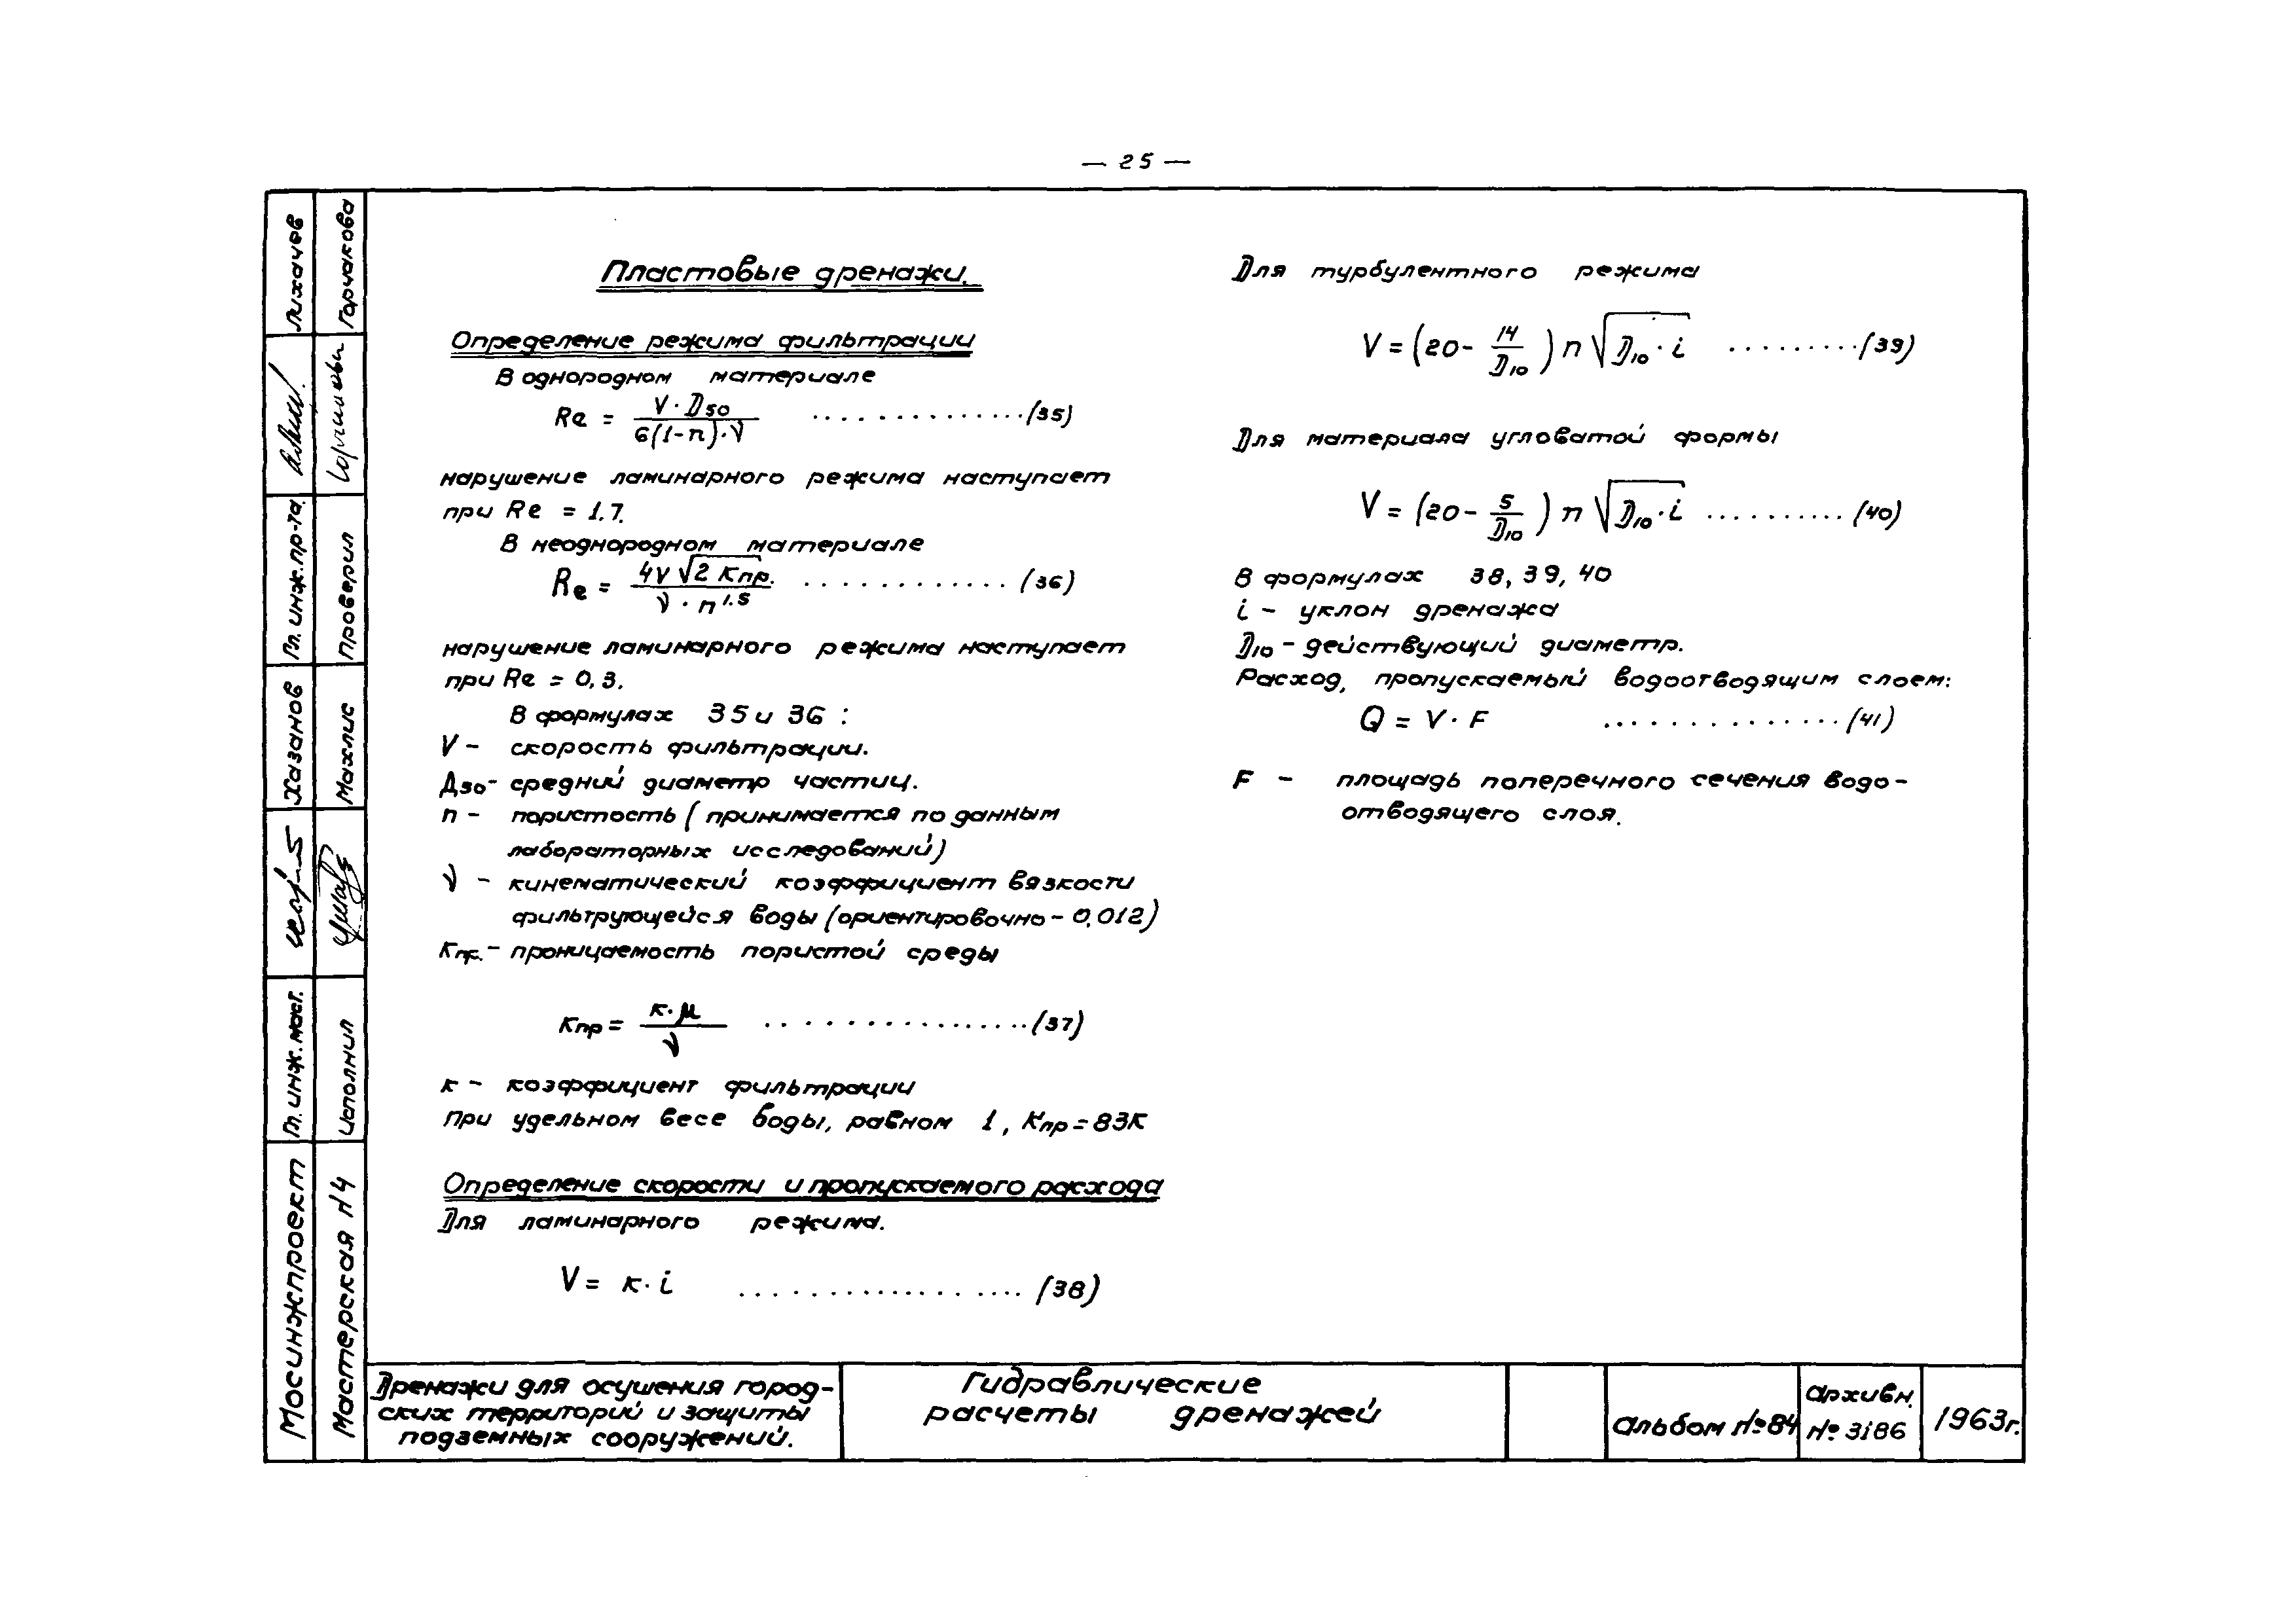 — 25 —
Пластовые дренажи.
Определение режима фильтрации
В однородном материале
Re = V·D50 / 6(1-n)·ν ..............(35)
нарушение ламинарного режима наступает
при Re = 1.7.
В неоднородном материале
Re = 4V √2 Кпр. / ν · n^1.5 ............(36)
нарушение ламинарного режима наступает
при Re = 0,3.
В формулах 35 и 36 :
V – скорость фильтрации.
Д50 - средний диаметр частиц.
n – пористость (принимается по данным
лабораторных исследований)
ν – кинематический коэффициент вязкости
фильтрующейся воды (ориентировочно – 0,012)
Кпр. – проницаемость пористой среды
Кпр = к·μ / ν ...............(37)
к – коэффициент фильтрации
при удельном весе воды, равном 1, Кпр = 83К
Определение скорости и пропускаемого расхода
Для ламинарного режима.
V = к·i ................(38)
Для турбулентного режима
V = (20 - 14/D10) n √D10·i .........(39)
Для материала угловатой формы
V = (20 - 5/D10) n √D10·i ..........(40)
В формулах 38, 39, 40
i – уклон дренажа
D10 – действующий диаметр.
Расход, пропускаемый водоотводящим слоем:
Q = V·F ..............(41)
F – площадь поперечного сечения водо-
отводящего слоя.
Мосинжпроект
Гл. инж. маст.
Хазанов
Гл. инж. пр-та.
Лихачев
Мастерская N4
Исполнил
Махлис
Проверил
Горчакова
Дренажи для осушения город-
ских территорий и защиты
подземных сооружений.
Гидравлические
расчеты дренажей
Альбом №84
Архивн.
№ 3186
1963г.